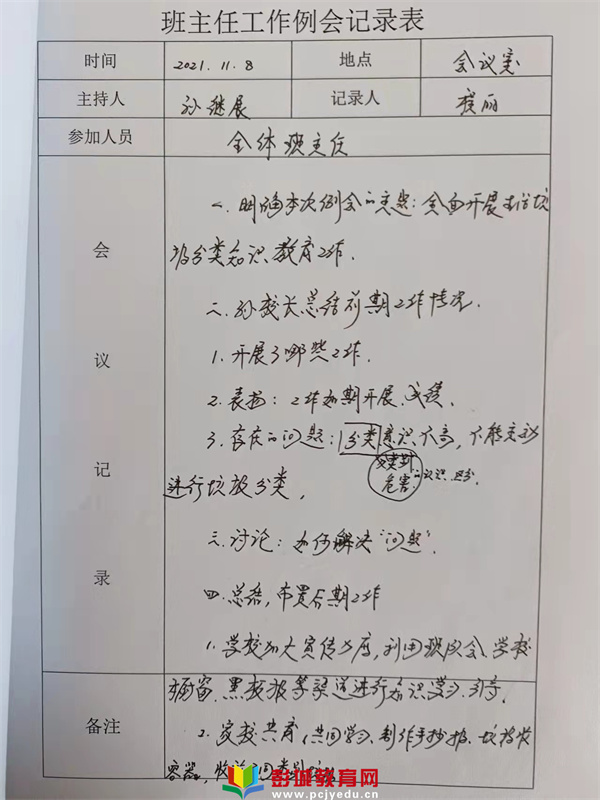 班主任工作例会记录表
时间 2021.11.8 地点 会议室
主持人 孙继展 记录人 程丽
参加人员 全体班主任
会议记录
一、明确本次例会的主题：全面开展生活垃
圾分类知识教育工作.
二、孙校长总结前期工作情况.
1. 开展了哪些工作.
2. 表扬：工作如期开展、成绩.
3. 存在的问题：1分类意识不高，不能主动
危害 的认识
进行垃圾分类，
三.讨论：如何解决“问题”.
四.总结，布置后期工作
1. 学校加大宣传力度，利用班队会、学校
橱窗、黑板报等渠道进行知识学习、引导.
备注
2. 家校共育（共同学习、制作手抄报、垃圾收
容器，
彭城教育网
www.pcjyedu.cn